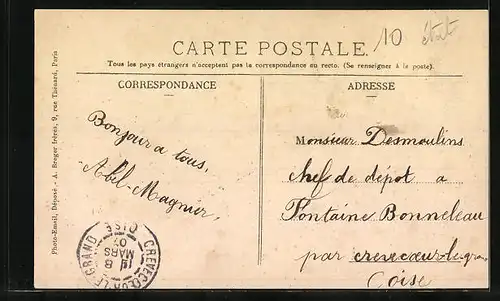 10 état
CARTE POSTALE.
Tous les pays étrangers n'acceptent pas la correspondance au recto. (Se renseigner à la poste).
CORRESPONDANCE
ADRESSE
Bonjour a tous,
Abel Magnier,
Monsieur Desmoulins
chef de dépot a
Fontaine Bonneleau
par crevecœur-le-gran
Oise
Photo-Émail, Déposé - A. Breger frères, 9, rue Thénard, Paris
CREVECŒUR-LE-GRAND
8
MARS
07
OISE